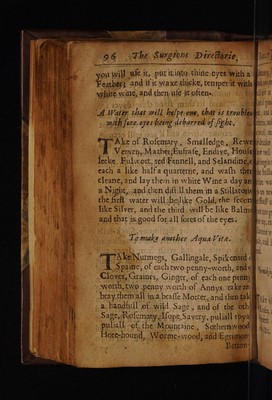 96 The Surgions Directorie,
you will use it, put it into thine eyes with a
Feather; and if it waxe thicke, temper it with
white wine, and then use it often.
A Water that will helpe one, that is troubled
with sore eyes being debarred of sight.
TAke of Rosemary, Smalledge, Rewe
Verven, Mather, Eufrase, Endive, House
leeke Fennell, and Selandine,
each a like half a quarterne, and wash them
cleane, and lay them in white Wine a day and
a Night, and then distill them in a Stillatorie
the first water will be like Gold, the second
like Silver, and the third will be like Balme
and that is good for all sores of the eyes.
To make another Aqua Vitæ.
TAke Nutmegs, Gallingale, Spikenard
Spaine, of each two penny-worth, and
Clover, Graines, Ginger, of each one penny
worth, two penny worth of Annys. take and
bray them all in a brasse Morter, and then take
a handfull of wild Sage, and of the oth
Sage, Rosemary, Isope, Savery, puliall
puliall of the Mountaine, Sothernwood
Hore-hound, Worme-wood, and